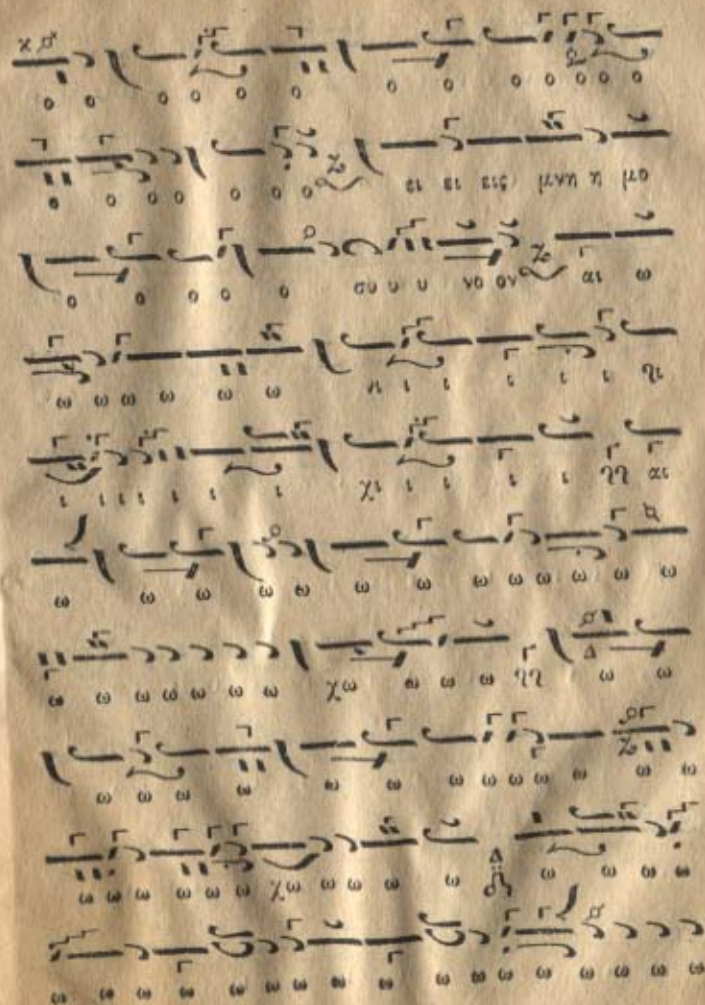 ο ο ο ο ο ο ο ο ο ο ο ο ο
ο ο ο ο ο ο ο ει ει εις μνη η μο
ο ο ο ο ο συ υ υ νο ον αι ω
ω ω ω ω ω ω ι ι ι ι ι
ι ι ι ι ι ι ι χι ι ι ι ι γγ αι
ω ω ω ω ω ω ω ω ω ω ω ω ω
ω ω ω ω ω ω ω χω ω ω ω γγ ω ω
ω ω ω ω ω ω ω ω ω ω ω ω ω
ω ω ω ω ω ω χω ω ω ω ω ω ω ω ω
ω ω ω ω ω ω ω ω ω ω ω ω ω ω ω ω ω